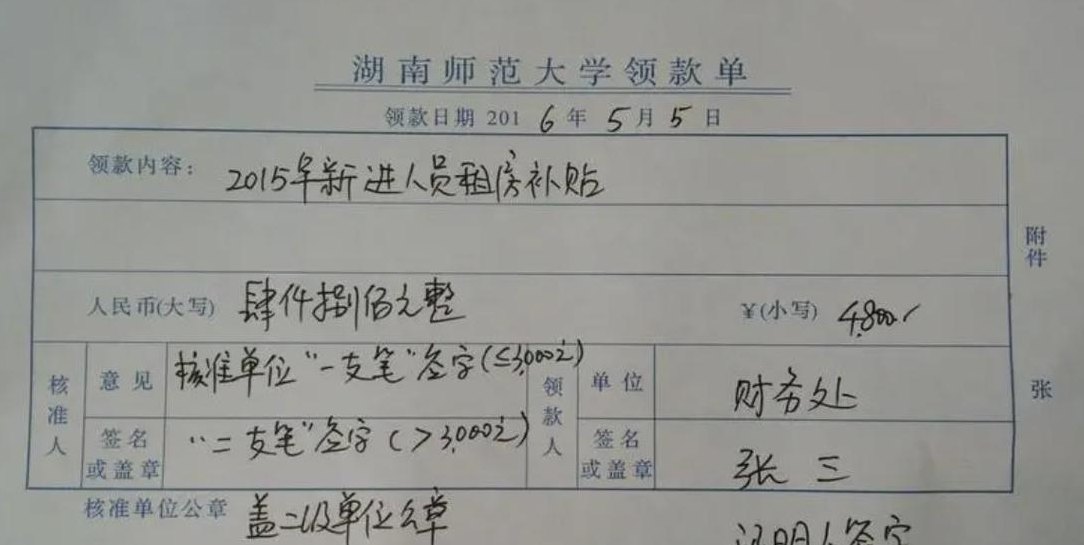 湖南师范大学领款单
领款日期 2016年5月5日
领款内容: 2015年新进人员租房补贴
附件
人民币(大写) 肆仟捌佰元整 ¥(小写) 4,800
核准人 意见 核准单位“一支笔”签字(≤3,000元) 领款人 单位 财务处
张
签名或盖章 “二支笔”签字(>3,000元) 签名或盖章 张三
核准单位公章 盖二级单位公章 证明人签字